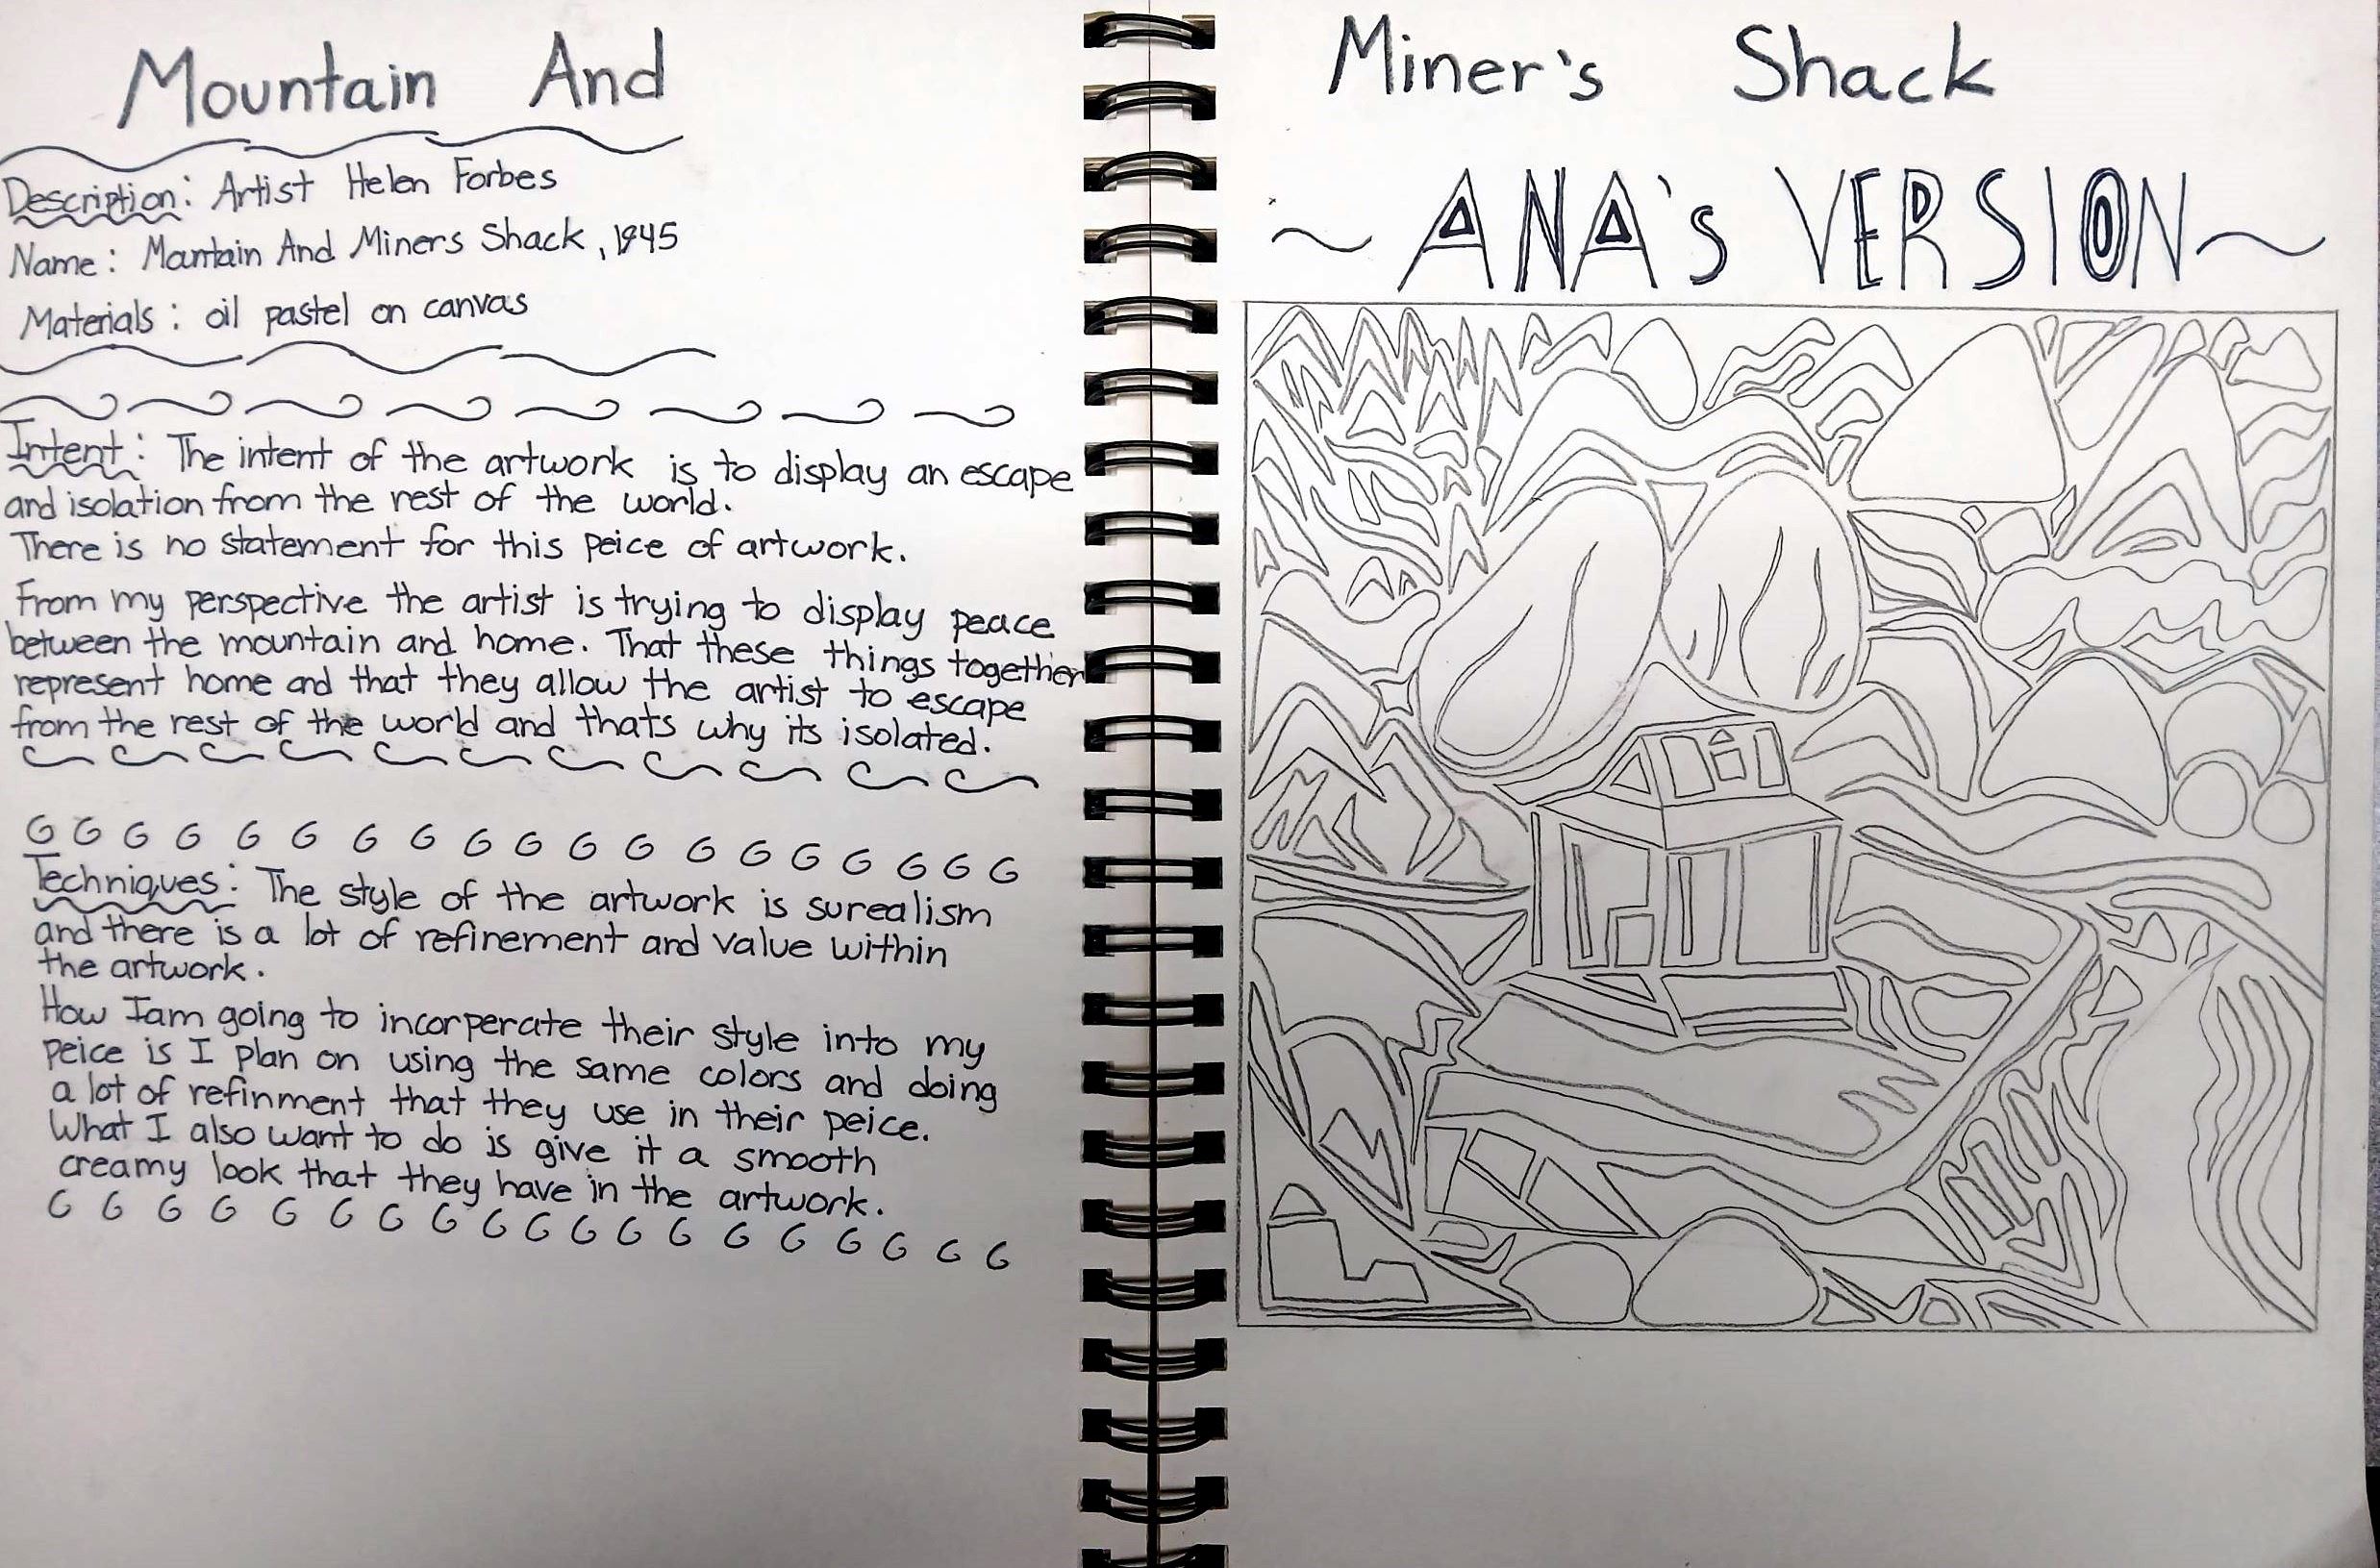 Mountain And
Description: Artist Helen Forbes
Name: Mountain And Miners Shack, 1945
Materials: oil pastel on canvas
Intent: The intent of the artwork is to display an escape
and isolation from the rest of the world.
There is no statement for this peice of artwork.
From my perspective the artist is trying to display peace
between the mountain and home. That these things together
represent home and that they allow the artist to escape
from the rest of the world and thats why its isolated.
Techniques: The style of the artwork is surealism
and there is a lot of refinement and value within
the artwork.
How I am going to incorperate their style into my
peice is I plan on using the same colors and doing
a lot of refinment that they use in their peice.
What I also want to do is give it a smooth
creamy look that they have in the artwork.
Miner's Shack
~ ANA's VERSION ~